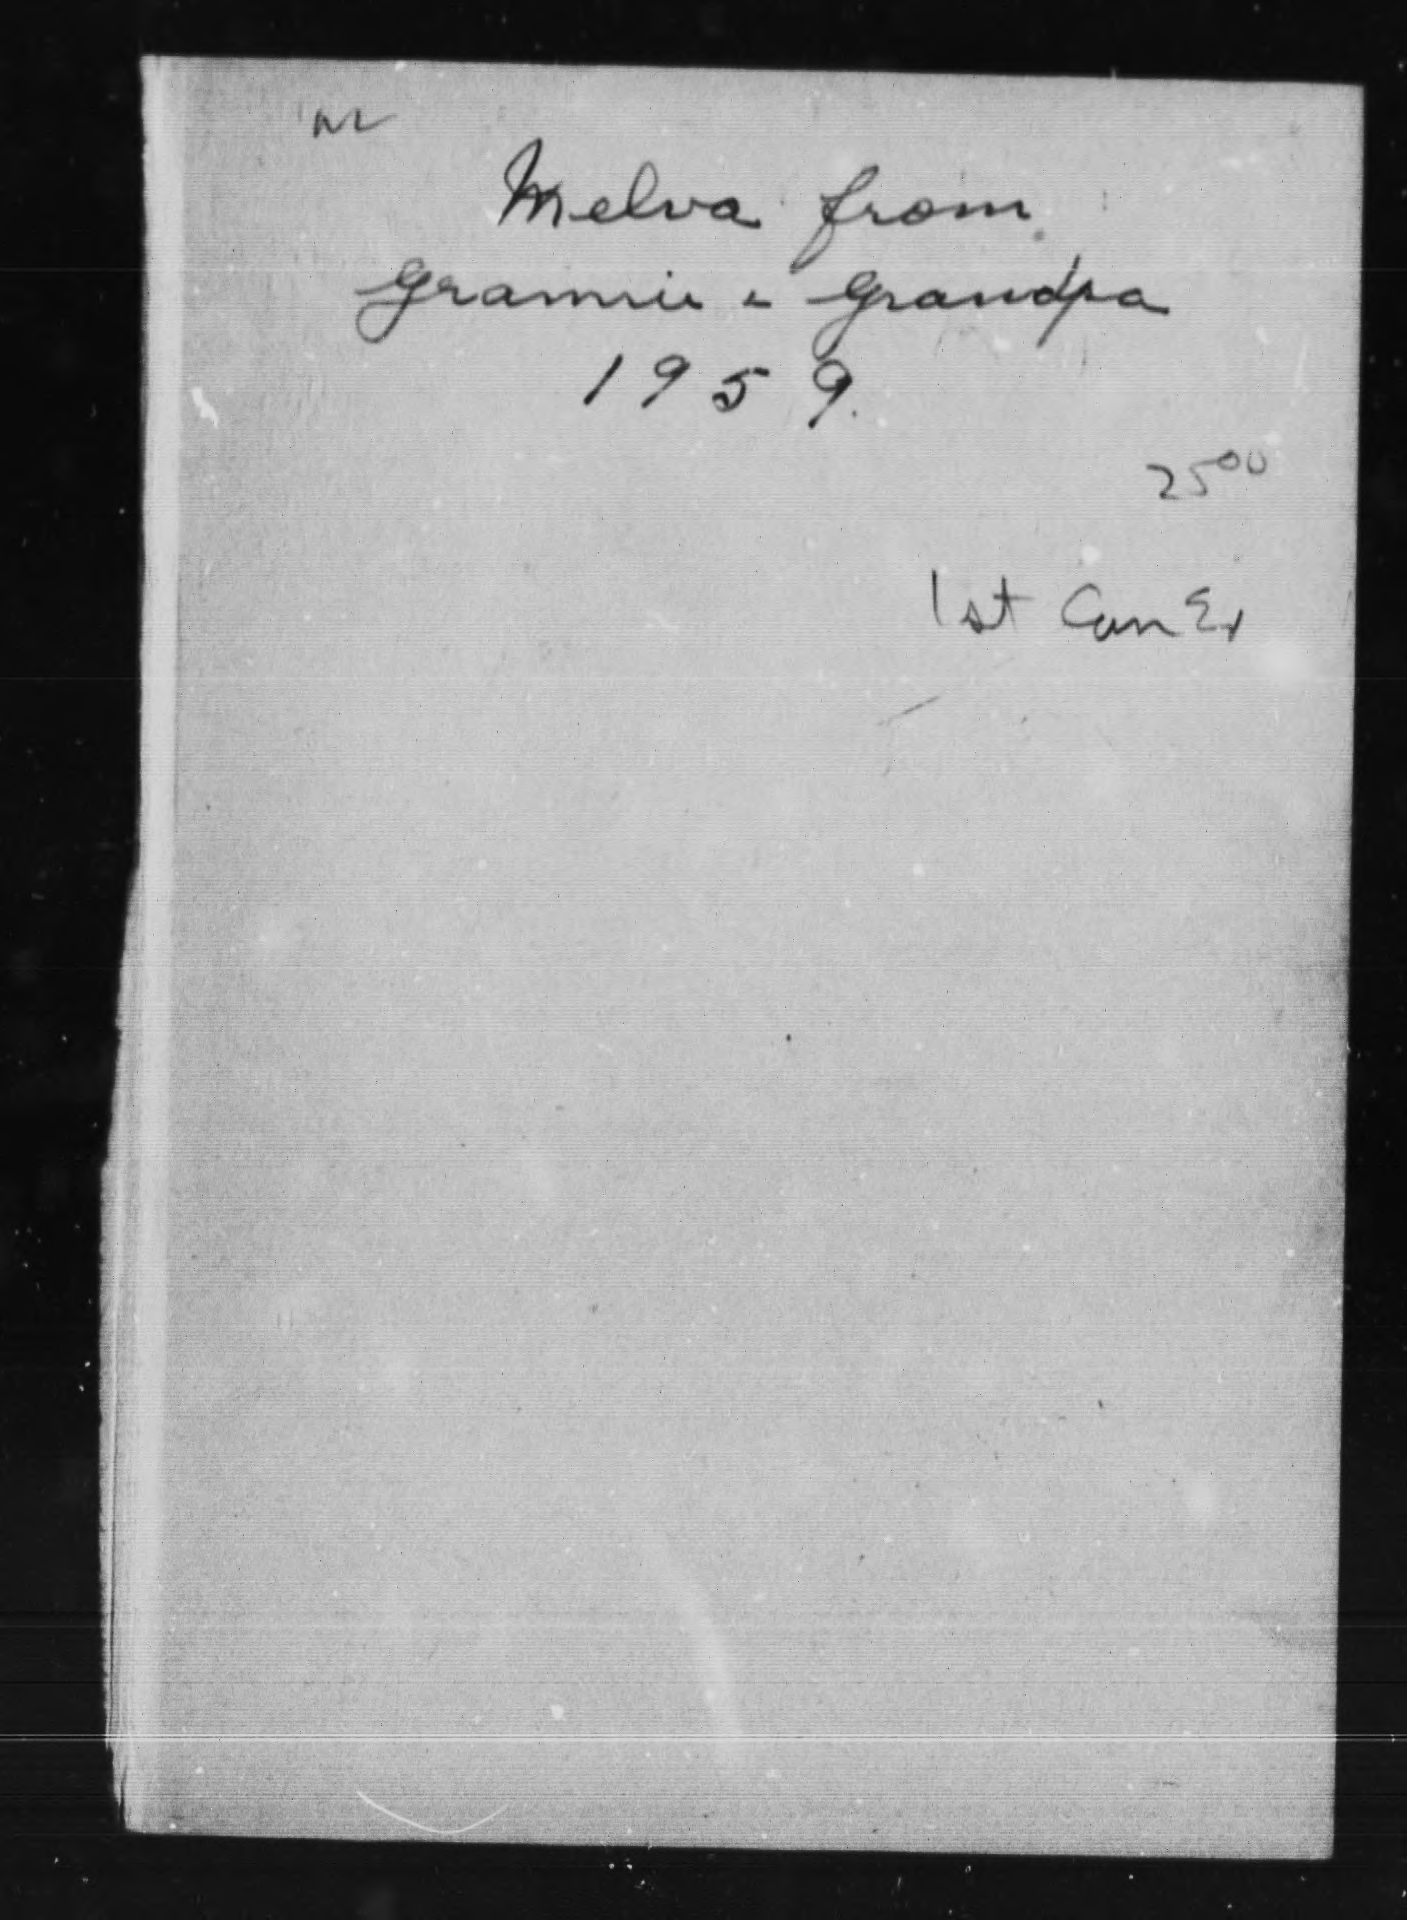 Melva from
Grannie & Grandpa
1959.
25 00
1st Can